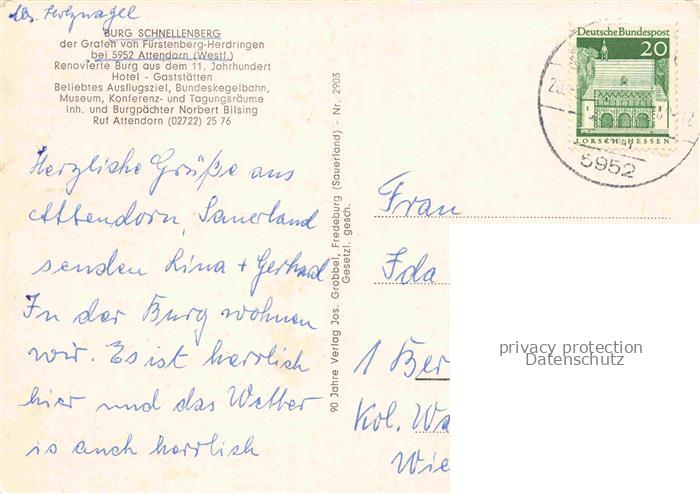 BURG SCHNELLENBERG
der Grafen von Fürstenberg-Herdringen
bei 5952 Attendorn (Westf.)
Renovierte Burg aus dem 11. Jahrhundert
Hotel - Gaststätten
Beliebtes Ausflugsziel, Bundeskegelbahn,
Museum, Konferenz- und Tagungsräume
Inh. und Burgpächter Norbert Bilsing
Ruf Attendorn (02722) 25 76
Herzliche Grüße aus
Attendorn, Sauerland
senden Lina + Gerhard
In der Burg wohnen
wir. Es ist herrlich
hier und das Wetter
is auch herrlich
90 Jahre Verlag Jos. Grobbel, Fredeburg (Sauerland) - Nr. 2903
Gesetzl. gesch.
Deutsche Bundespost
20
LORSCH/HESSEN
5952
Frau
Ida
1 Ber
Kol. Wa
Wie
privacy protection
Datenschutz